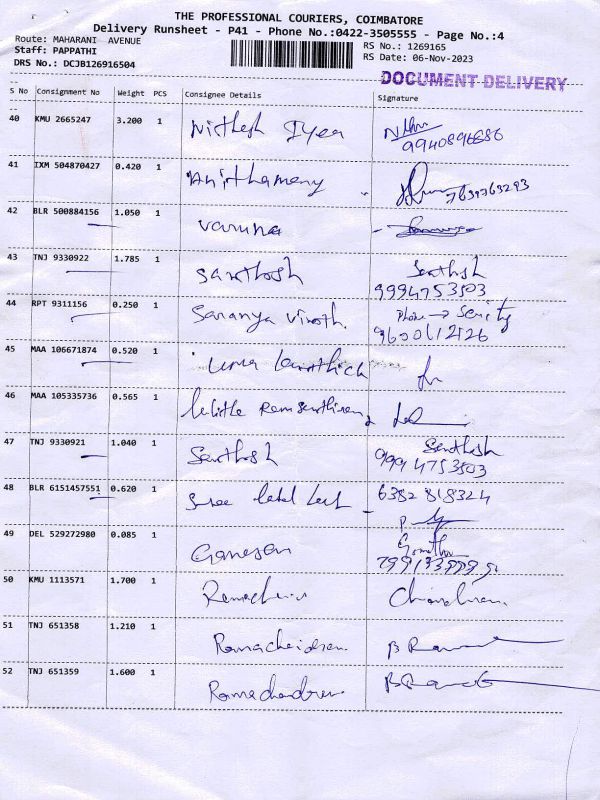 THE PROFESSIONAL COURIERS, COIMBATORE
Delivery Runsheet - P41 - Phone No.:0422-3505555 - Page No.:4
Route: MAHARANI AVENUE
RS No.: 1269165
Staff: PAPPATHI
RS Date: 06-Nov-2023
DRS No.: DCJB126916504
DOCUMENT DELIVERY
S No Consignment No Weight PCS Consignee Details Signature
40 KMU 2665247 3.200 1 Nithesh Iyer
9940896686
41 IXM 504870427 0.420 1
7639763293
42 BLR 500884156 1.050 1 Varuna
43 TNJ 9330922 1.785 1 Santhosh Santhosh
9994753503
44 RPT 9311156 0.250 1 Saranya Vinoth. Phone → Security
9600612126
45 MAA 106671874 0.520 1 Uma
46 MAA 105335736 0.565 1
47 TNJ 9330921 1.040 1 Santhosh Santhosh
9994753503
48 BLR 6151457551 0.620 1 Sree
6382818324
49 DEL 529272980 0.085 1 Ganesan
50 KMU 1113571 1.700 1
51 TNJ 651358 1.210 1 Ramachandran
52 TNJ 651359 1.600 1 Ramachandran